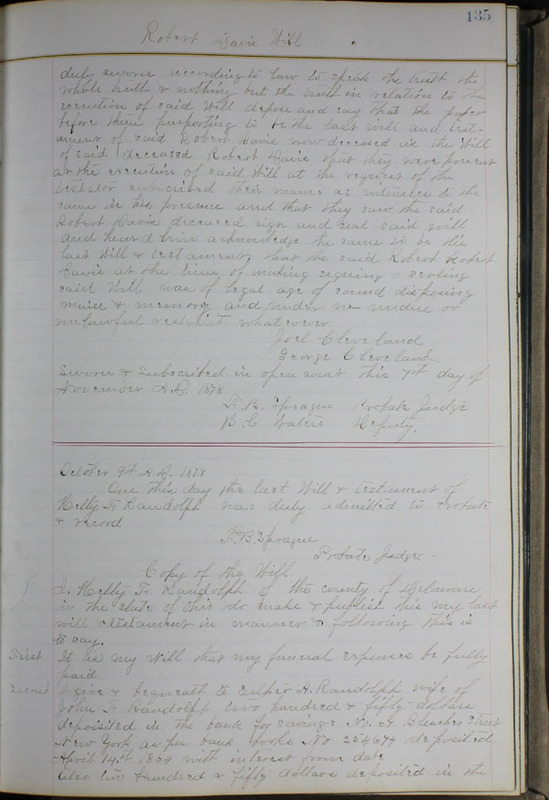 135
Robert Davis Will
duly sworn according to law to speak the truth the
whole truth & nothing but the truth in relation to the
execution of said Will depose and say that the paper
before them purporting to be the last will and test-
ament of said Robert Davis now deceased is the Will
of said deceased Robert Davis that they were present
at the execution of said Will at the request of the
testator subscribed their names as witnesses to the
same in his presence and that they saw the said
Robert Davis deceased sign and seal said will
and heard him acknowledge the same to be his
last Will & testament, that the said Robert Robert
Davis at the time of making signing & sealing
said Will was of legal age of sound disposing
mind & memory and under no undue or
unlawful restraint whatever
Joel Cleveland
George Cleveland
Sworn & Subscribed in open court this 7st day of
November A.D. 1878
F. B. Sprague Probate Judge
B. C. Waters Deputy.
October 9th A.D. 1878
One this day the last Will & testament of
Hetty F. Randolph was duly admitted to Probate
& record
F. B. Sprague
Probate Judge
Copy of the Will
I, Hetty F. Randolph of the county of Delaware
in the state of Ohio do make & publish this my last
will & testament in manner & following this is
to say.
First It is my Will that my funeral expenses be fully
paid
Second I give & bequeath to Esther A. Randolph wife of
John F. Randolph two hundred & fifty dollars
deposited in the bank for savings No. Bleecker Street
New York as per bank books No 254674 deposited
April 14th with interest from date
Also two hundred & fifty dollars deposited in the